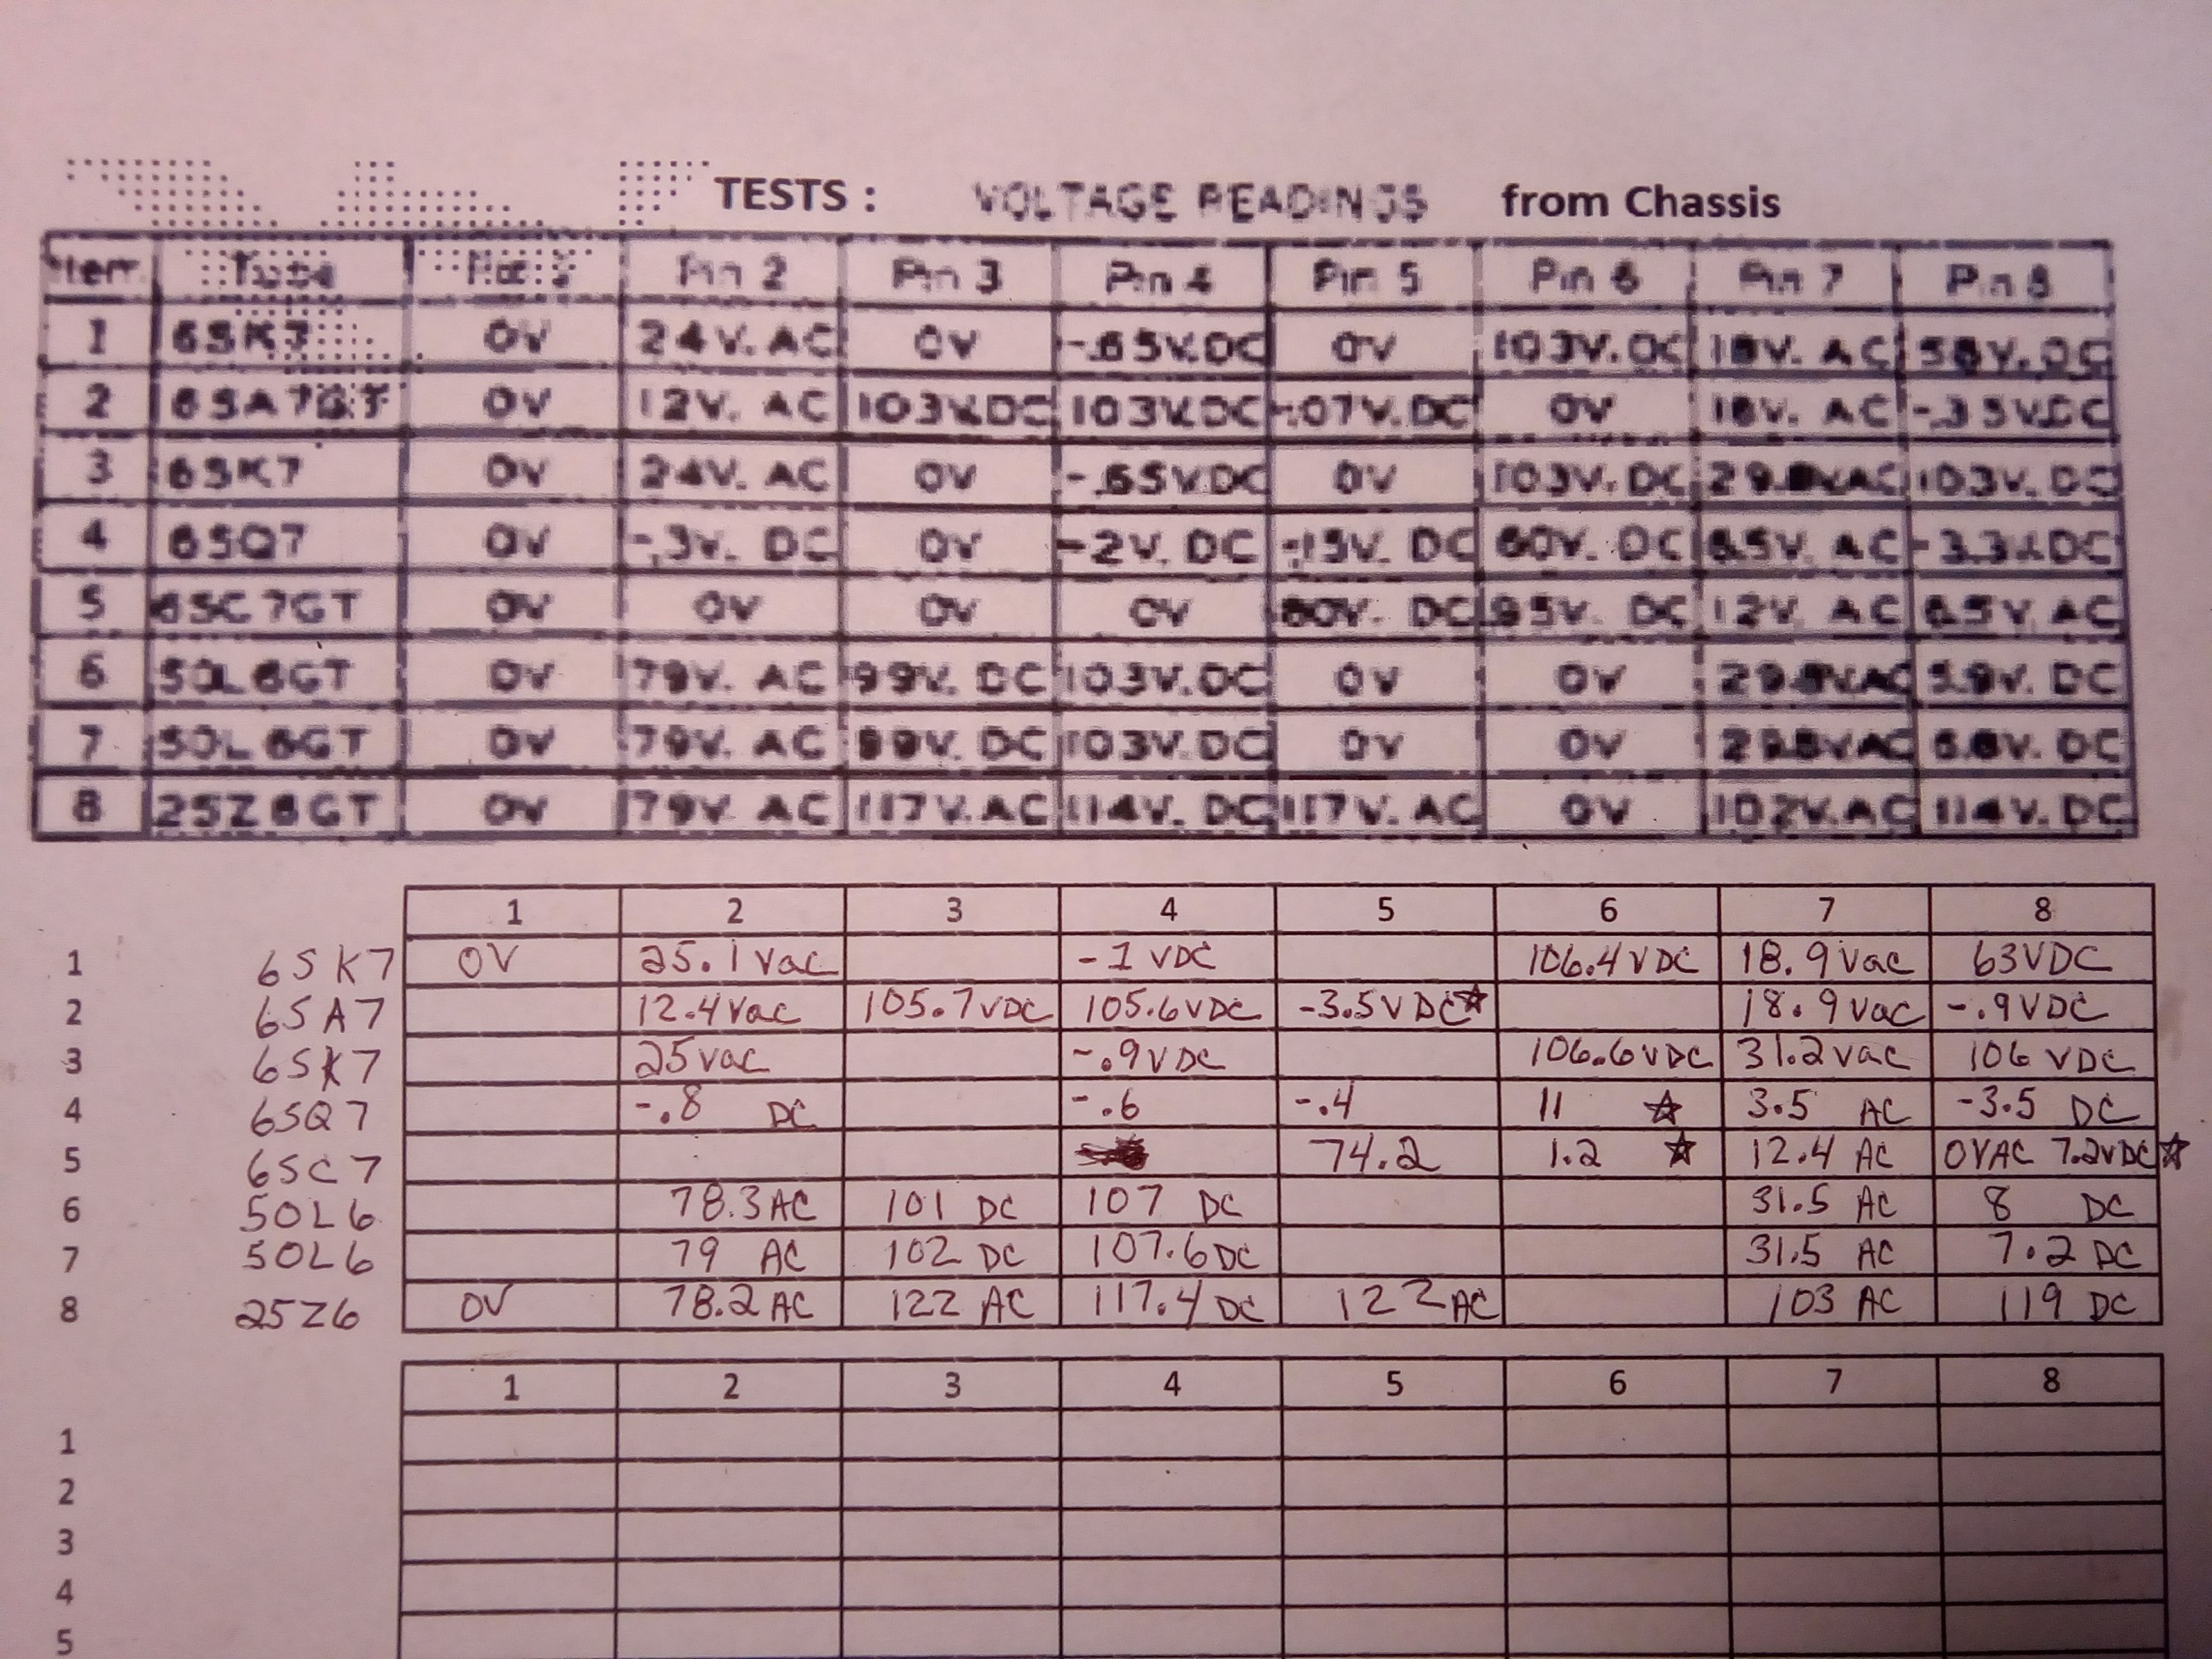 TESTS : VOLTAGE READINGS from Chassis
Item Tube Pin 2 Pin 3 Pin 4 Pin 5 Pin 6 Pin 7 Pin 8
1 6SK7 0V 24V. AC 0V -.65V.DC 0V 103V.DC 18V. AC 58V.DC
2 6SA7GT 0V 12V. AC 103V.DC 103V.DC -.07V.DC 0V 18V. AC -.35V.DC
3 6SK7 0V 24V. AC 0V -.65V.DC 0V 103V. DC 103V. DC
4 6SQ7 0V -.3V. DC 0V -.2V. DC -.15V. DC 60V. DC 6.5V. AC
5 6SC7GT 0V 0V 0V 0V 80V. DC 95V. DC 12V. AC 6.5V. AC
6 50L6GT 0V 79V. AC 99V. DC 103V.DC 0V 0V 29.8VAC 5.9V. DC
7 50L6GT 0V 79V. AC 99V. DC 103V.DC 0V 0V 29.8VAC
8 25Z6GT 0V 79V. AC 117V.AC 114V. DC 117V. AC 0V 102V.AC 114V. DC
1 2 3 4 5 6 7 8
1 6SK7 0V 25.1Vac -1 VDC 106.4VDC 18.9Vac 63VDC
2 6SA7 12.4Vac 105.7VDC 105.6VDC -3.5VDC☆ 18.9Vac -.9VDC
3 6SK7 25vac -.9VDC 106.6VDC 31.2vac 106 VDC
4 6SQ7 -.8 DC -.6 -.4 11 ☆ 3.5 AC -3.5 DC
5 6SC7 74.2 1.2 ☆ 12.4 AC 0VAC 7.2VDC☆
6 50L6 78.3AC 101 DC 107 DC 31.5 AC 8 DC
7 50L6 79 AC 102 DC 107.6DC 31.5 AC 7.2 DC
8 25Z6 0V 78.2AC 122 AC 117.4 DC 122AC 103 AC 119 DC
1 2 3 4 5 6 7 8
1
2
3
4
5